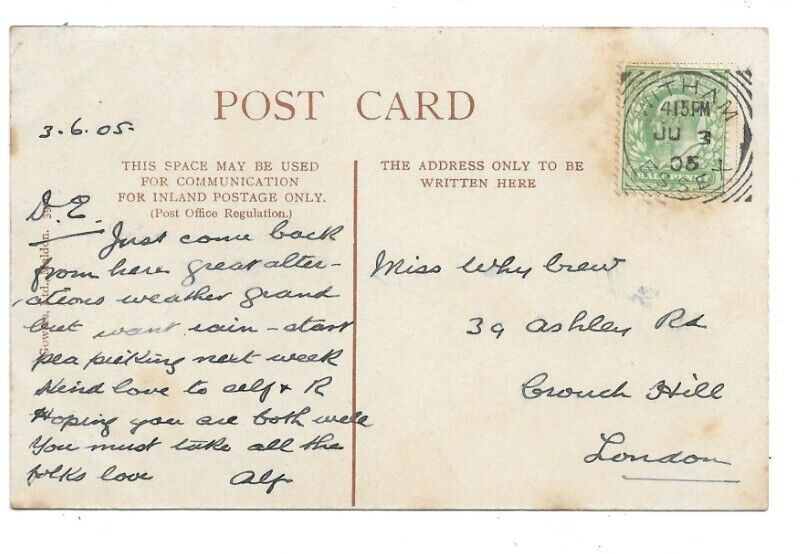 POST CARD
3.6.05.
THIS SPACE MAY BE USED
FOR COMMUNICATION
FOR INLAND POSTAGE ONLY.
(Post Office Regulation.)
D. E.
Just come back
from here great alter-
ations weather grand
but want rain - start
pea picking next week
Kind love to self & R
Hoping you are both well
You must take all the
folks love Alf
THE ADDRESS ONLY TO BE
WRITTEN HERE
Miss Whybrew
39 Ashley Rd
Crouch Hill
London
WITHAM
4 15 PM
JU 3
05
ESSEX
HALFPENNY